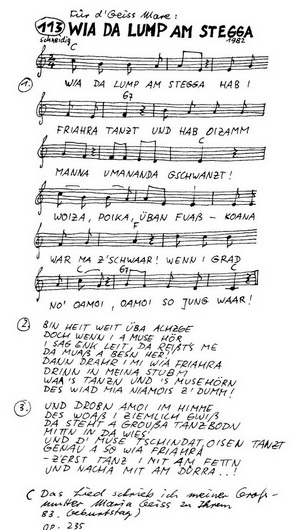 Für d'Geiss Mare:
113 WIA DA LUMP AM STEGGA
schneidig 1982
C
1. WIA DA LUMP AM STEGGA HAB I
G7
FRIAHRA TANZT UND HAB OIZAMM
C
MANNA UMANANDA GSCHWANZT!
WOIZA, POIKA, ÜBAN FUAß - KOANA
F
WAR MA Z'SCHWAAR! WENN I GRAD
C G7 C
NO' OAMOI, OAMOI SO JUNG WAAR!
2. BIN HEIT WEIT ÜBA ACHZGE
DOCH WENN I A MUSE HÖR
I SAG ENK LEIT, DA REIßTS ME
DA MUAß A BESN HER!
DANN DRAHR I MI WIA FRIAHRA
DRINN IN MEINA STUBM
WAA'S TANZN UND 'S MUSEHÖRN
DES WIAD MIA NIAMOIS Z'DUMM!
3. UND DROBN AMOI IM HIMME
DES WOAß I ZIEMLICH GWIß
DA STEHT A GROUßA TANZBODN
MITTN IN DA WIES
UND D' MUSE TSCHINDAT, OISEN TANZT
GENAU A SO WIA FRIAHRA
- ZERST TANZ I MIT AM FETTN
UND NACHA MIT AM DÜRRA..!
( Das Lied schrieb ich meiner Groß-
mutter Maria Geiss zu Ihrem
83. Geburtstag)
OP. 235